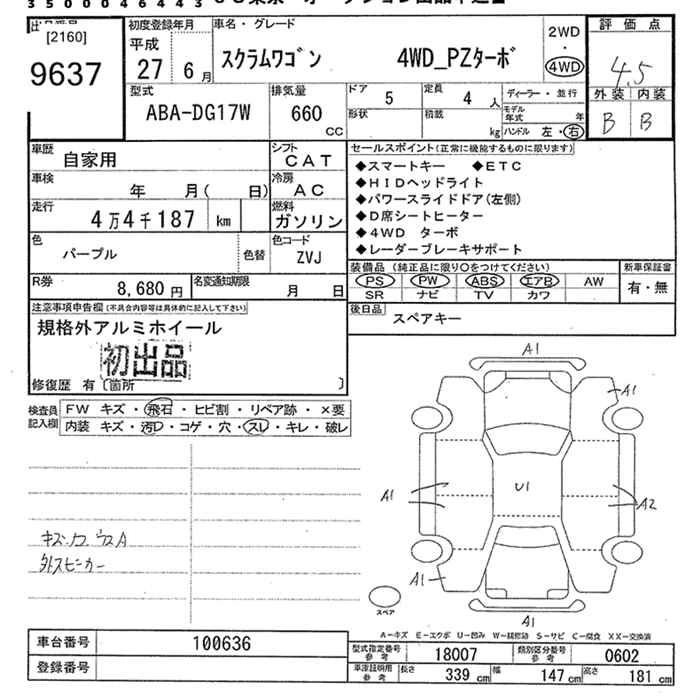 350000466443
[2160]
9637
初度登録年月
平成
27 6月
車名・グレード
スクラムワゴン 4WD_PZターボ
2WD
・
4WD
評価点
4.5
外装 内装
B B
型式
ABA-DG17W
排気量
660
CC
ドア
5
形状
定員
4 人
積載
kg
ディーラー・並行
モデル年式 年
ハンドル 左・右
車歴
自家用
シフト
CAT
車検
年 月( 日)
冷房
AC
走行
4万4千187 km
燃料
ガソリン
色
パープル
色替
色コード
ZVJ
R券
8,680円
名変通知期限
月 日
セールスポイント(正常に機能するものに限ります)
◆スマートキー ◆ETC
◆HIDヘッドライト
◆パワースライドドア(左側)
◆D席シートヒーター
◆4WD ターボ
◆レーダーブレーキサポート
装備品(純正品に限り○をつけてください)
PS PW ABS エアB AW
SR ナビ TV カワ
新車保証書
有・無
後日品
スペアキー
注意事項申告欄(不具合内容等は具体的に記入して下さい)
規格外アルミホイール
初出品
修復歴 有〔箇所 〕
検査員記入欄
FW キズ・飛石・ヒビ割・リペア跡・×要
内装 キズ・汚レ・コゲ・穴・スレ・キレ・破レ
外スピーカー
A1
A1
A1
U1
A2
A1
A1
スペア
A-キズ E-エクボ U-凹み W-補修跡 S-サビ C-腐食 XX-交換済
車台番号
100636
登録番号
型式指定番号
参考
18007
類別区分番号
参考
0602
車庫証明用
参考
長さ 339 cm 幅 147 cm 高さ 181 cm